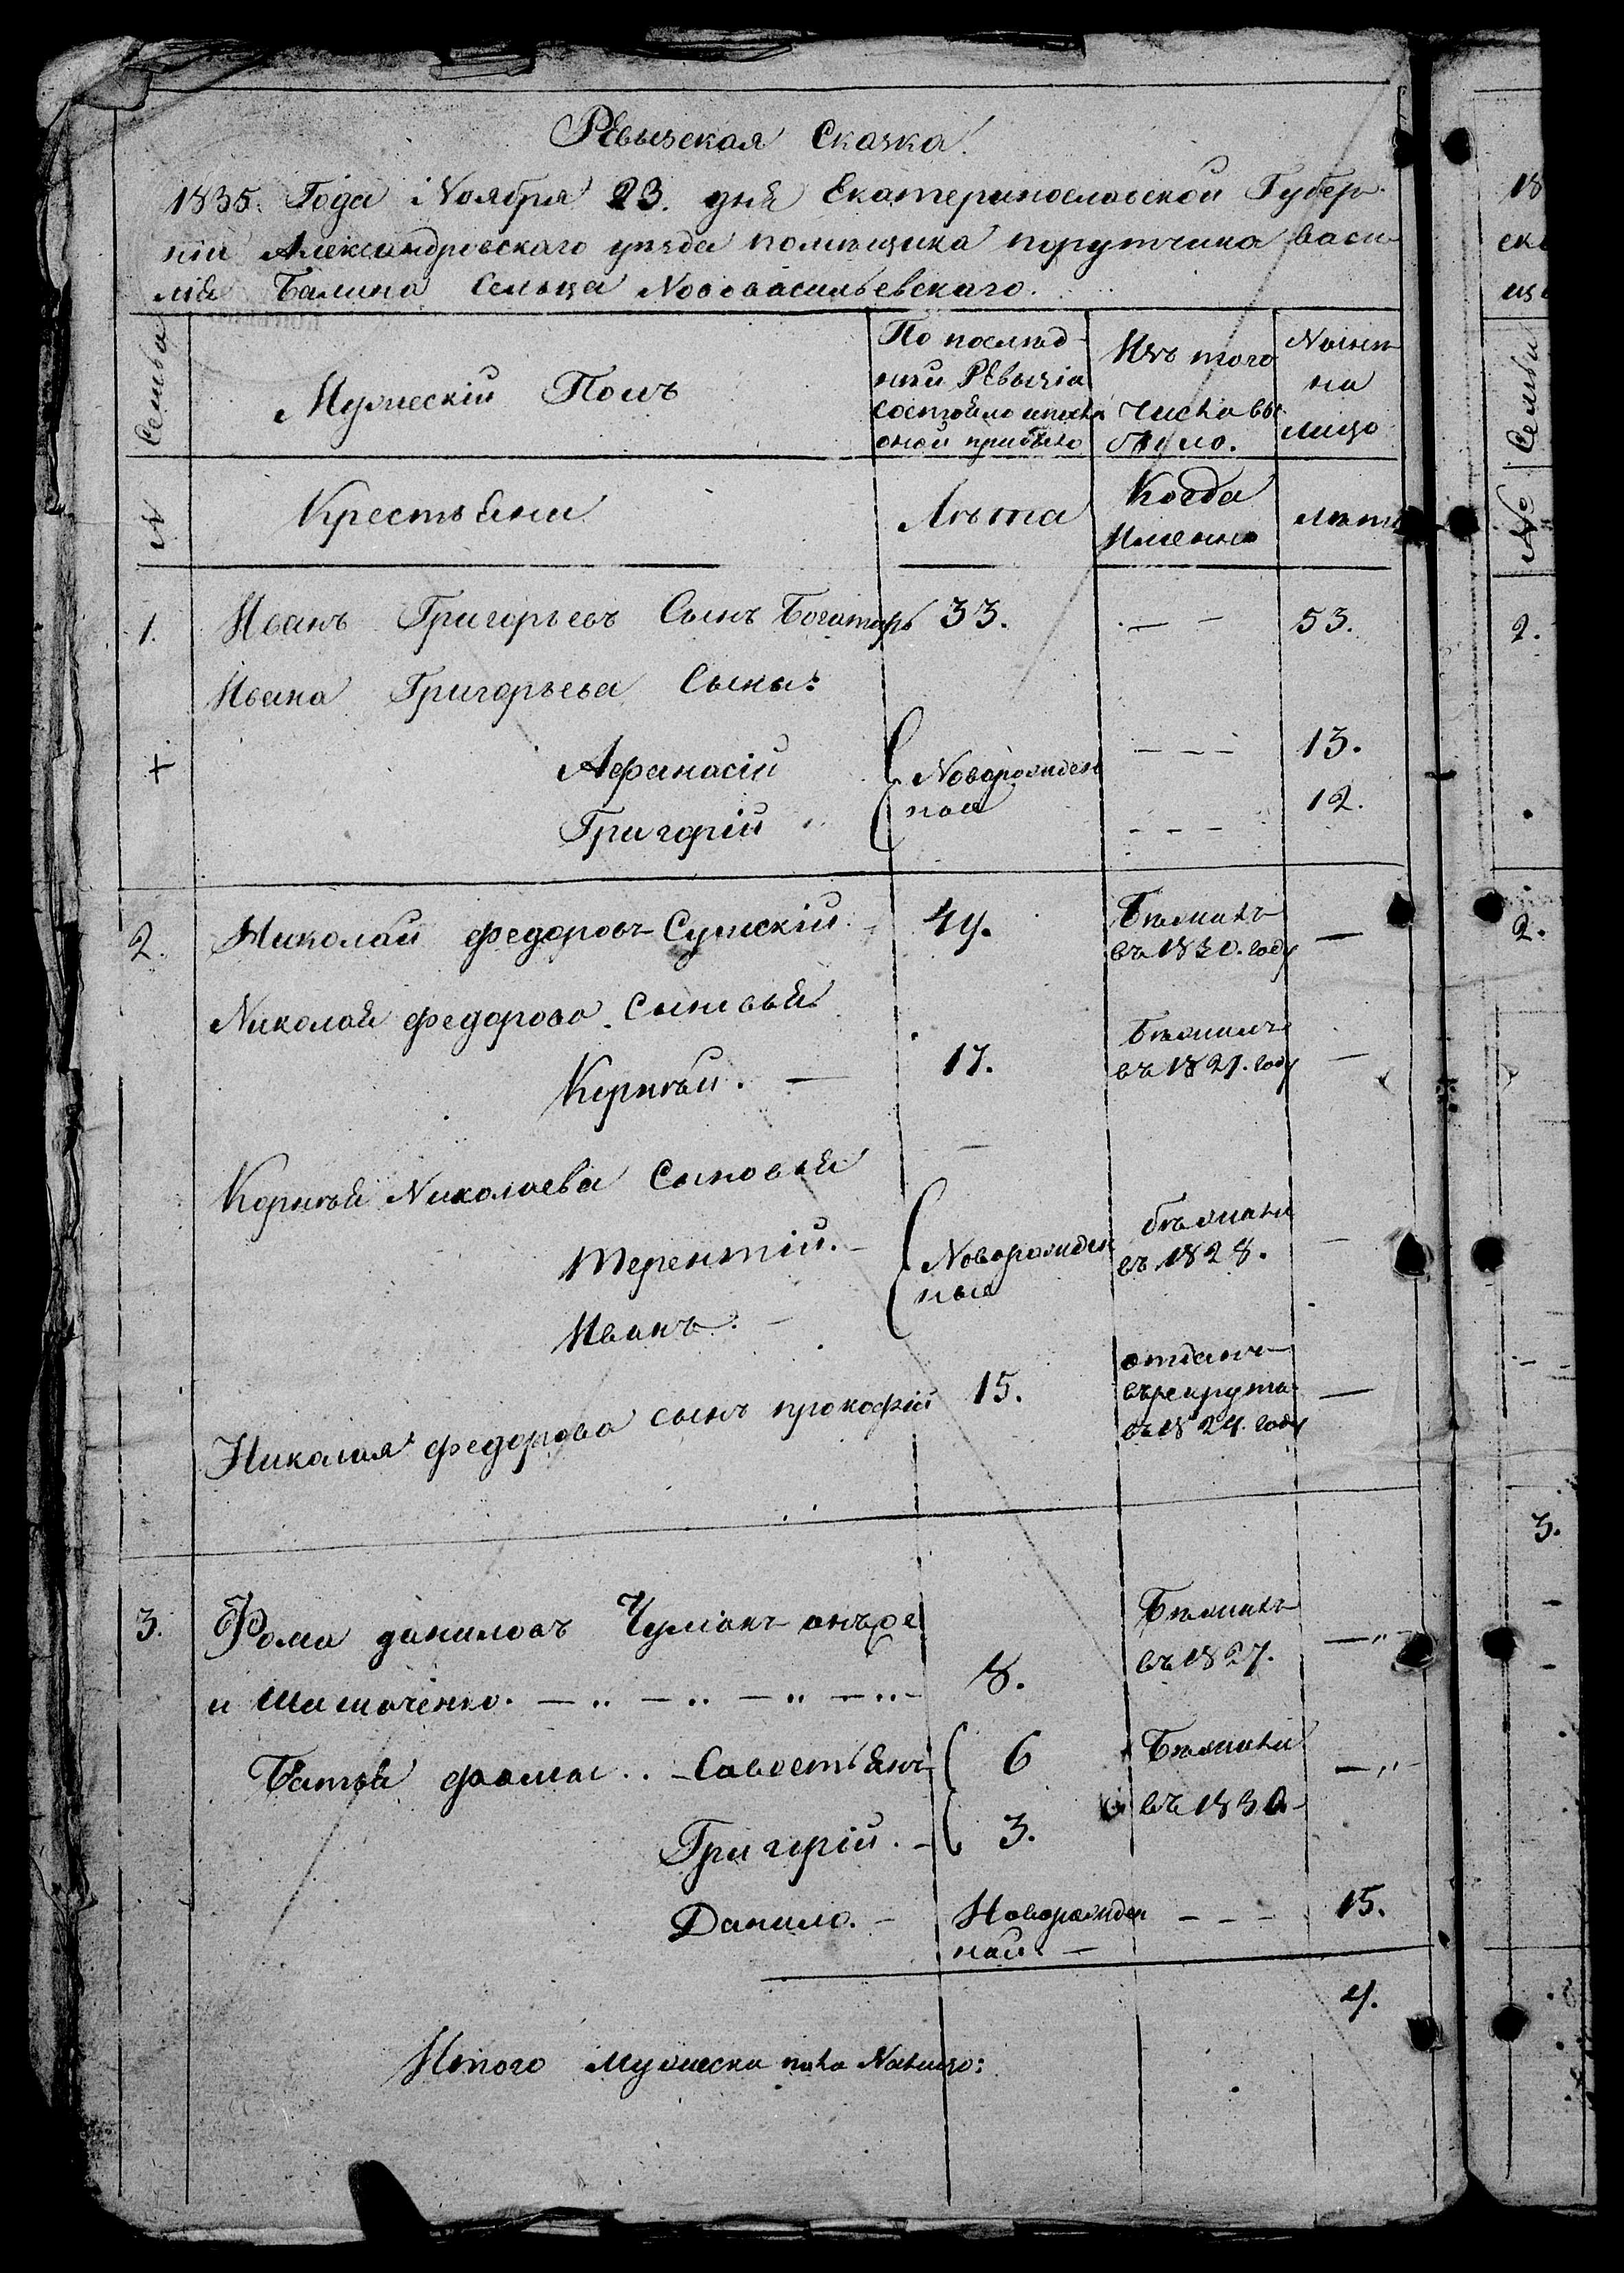 Ревызская Сказка.
1835. Года Ноября 23. дня Екатеринославской Губер-
ніи Александровскаго уѣзда помѣщика порутчика Васи-
лія Балина Сельца Нововасильевскаго.
Семьи
Мужескій Полъ
По послѣд-
ней Ревызіи
состояло и послѣ
оной прибыло
Изъ того
числа вы
было.
Нынѣ
на
лицо
№
Крестьяни
Лѣта
Когда
Именно
лѣта
1. Иванъ Григорьевъ Сынъ Богатырь 33. — — 53.
Ивана Григорьева Сыны:
+ Афанасій Новорожден
ные — — — 13.
Григорій — — — 12.
2. Николай федоровъ Сумскій 44. Бѣжалъ
въ 1830. году —
Николай федорова Сыновья
Корнѣй. — 17. Бѣжалъ
въ 1821. году —
Корнѣй Николаева Сыновья
Терентій. — Новорожден
ные бѣжали
въ 1828. —
Иванъ. —
Николая федорова сынъ прокофій 15. отданъ
въ рекруты
въ 1824. году —
3. Фома даниловъ Чумакъ онъ же
и 8. Бѣжалъ
въ 1827. — „
— „ — „ — „ — „ —
фомы .. — Савостьянъ 6 Бѣжали
въ 1830 — „
Григорій. — 3.
Данило. — Новорожден
ный — — — — 15.
4.
Итого Мужеска пола На лицо:
18
Семьи
№
2.
2.
3.